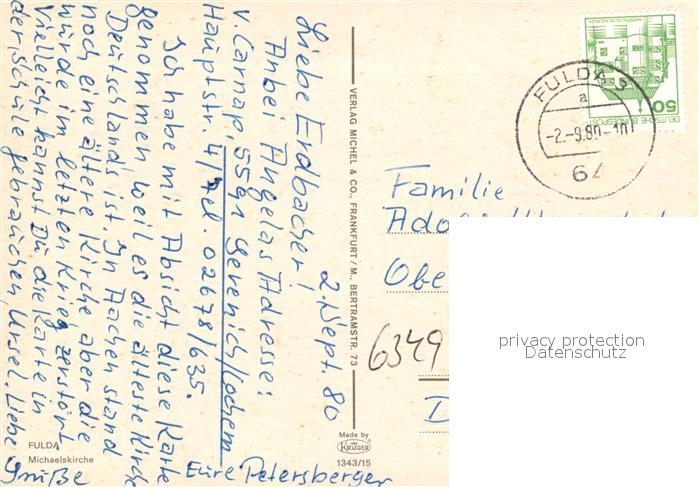 2. Sept. 80
Liebe Erdbacher!
Anbei Angelas Adresse:
v. Carnap, 5591 Gevenich/Cochem
Hauptstr. 4, Tel. 02678/635.
Ich habe mit Absicht diese Karte
genommen, weil es die älteste Kirche
Deutschlands ist. In Aachen stand
noch eine ältere Kirche aber die
würde im letzten Krieg zerstört
Vielleicht kannst Du die Karte in
der Schule gebrauchen, Ursel. Liebe
Grüße Eure Petersberger
FULDA
Michaelskirche
VERLAG MICHEL & CO., FRANKFURT/M., BERTRAMSTR. 73
Made by
KRÜGER
1343/15
DEUTSCHE BUNDESPOST
50
FULDA 3
a
-2.-9.80-10
64
Familie
Obe
6349
D
privacy protection
Datenschutz